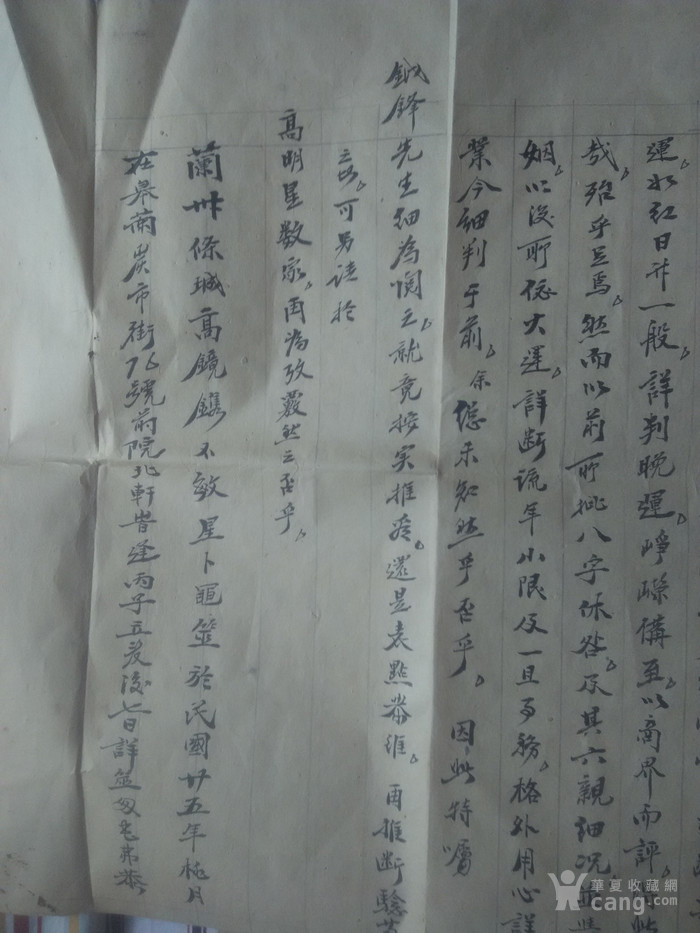 運。水紅日升一般。詳判晚運。崢嶸備至。以商界而評。
哉。殆乎足焉。然而以前所批八字休咎。及其六親細况
姻。以後所佔大運。詳斷流年小限及一旦事務。格外用心詳
業今細判于前。余總未知然乎否乎。因此特囑
鉞鋒先生細為閱之。就竟按实推否。還是袁點恭維。再推斷驗
之。可另請於
高明星数家。再為攷覈然之否乎。
蘭州條城高鏡鐫不敏星卜龜筮於民國廿五年梅月
在皋蘭炭市街76號前院北軒皆逢丙子立夏後七日詳筮
華夏收藏網
cang.com